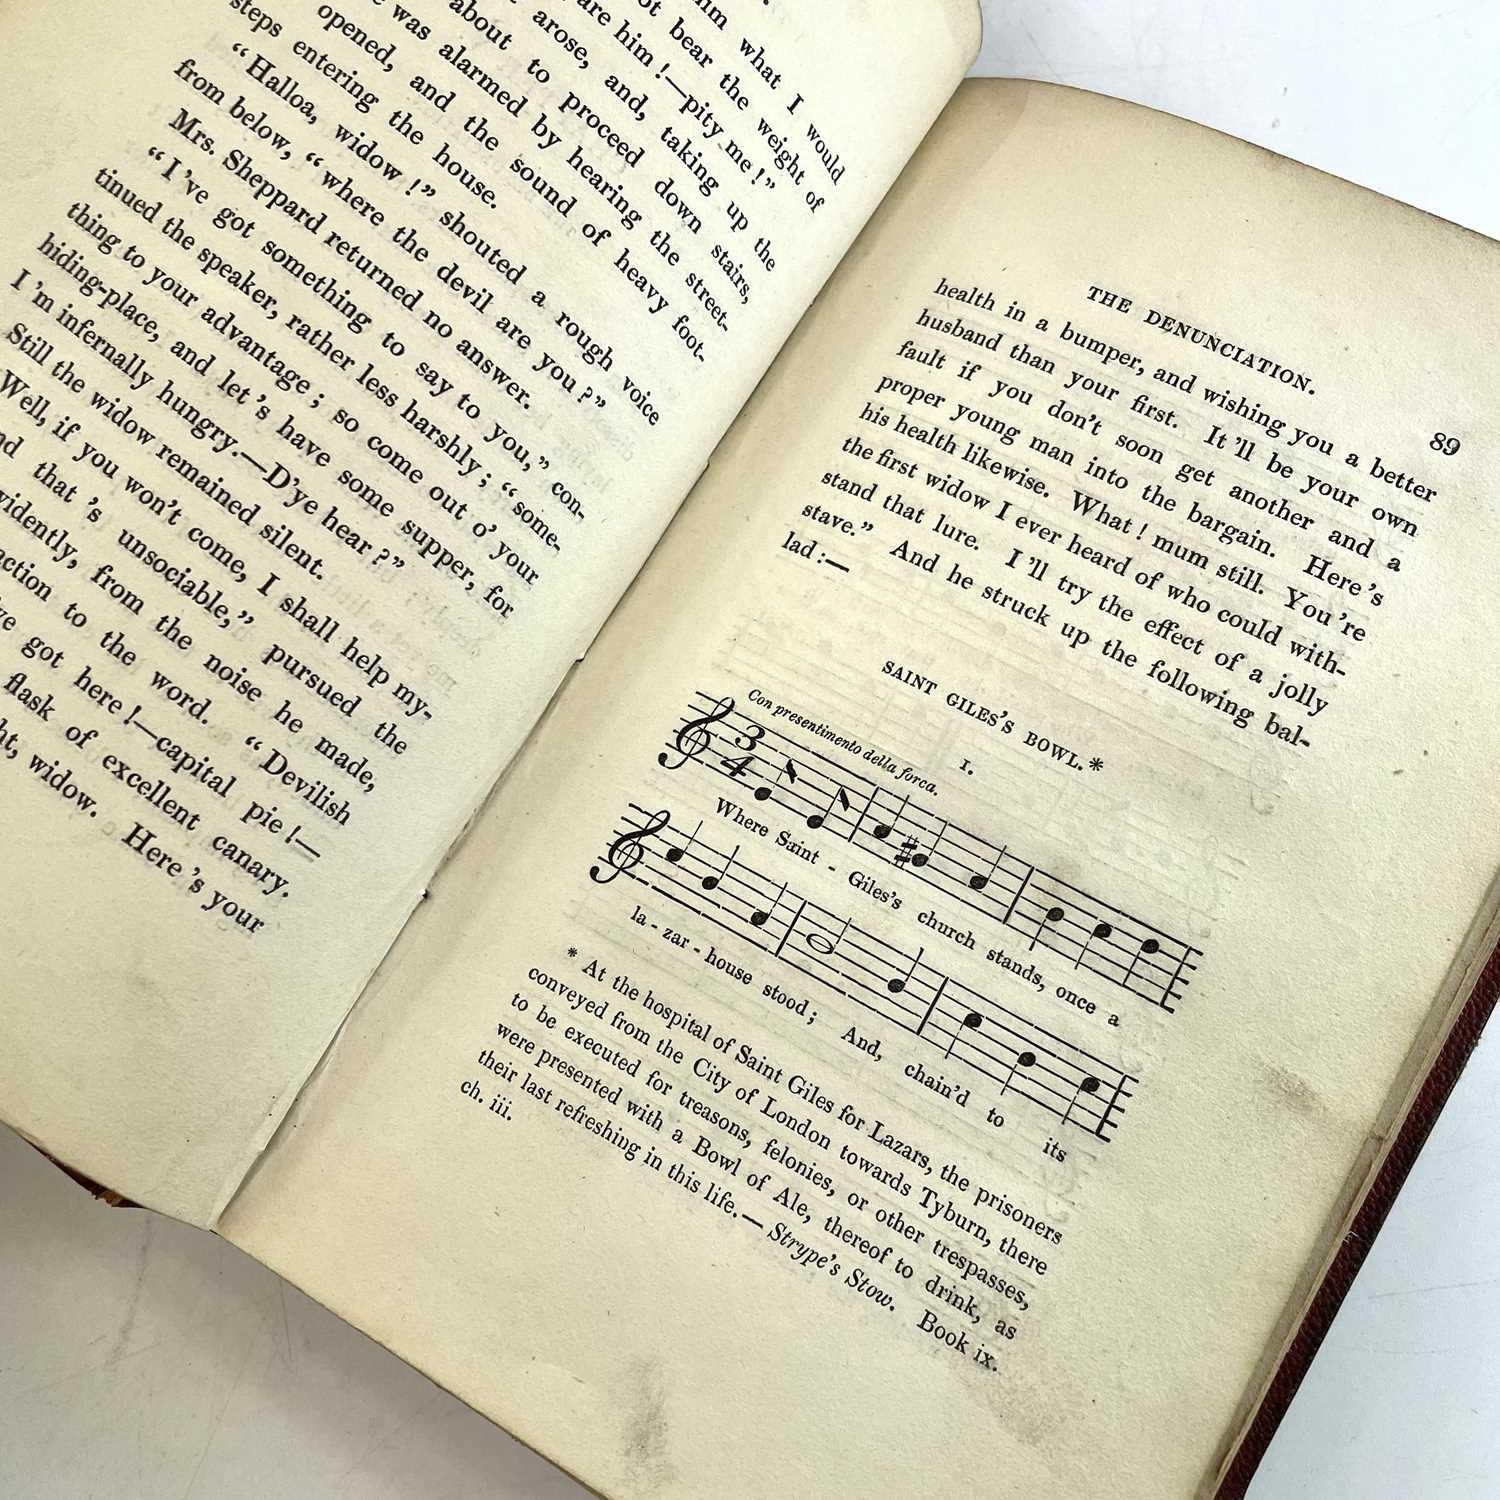 him what I would
not bear the weight of
are him!—pity me!"
arose, and, taking up the
about to proceed down stairs,
was alarmed by hearing the street-
opened, and the sound of heavy foot-
steps entering the house.
"Halloa, widow!" shouted a rough voice
from below, "where the devil are you?"
Mrs. Sheppard returned no answer.
"I've got something to say to you," con-
tinued the speaker, rather less harshly; "some-
thing to your advantage; so come out o' your
hiding-place, and let's have some supper, for
I'm infernally hungry.—D'ye hear?"
Still the widow remained silent.
Well, if you won't come, I shall help my-
nd that's unsociable," pursued the
vidently, from the noise he made,
action to the word. "Devilish
ve got here!—capital pie!—
flask of excellent canary.
ht, widow. Here's your
THE DENUNCIATION. 89
health in a bumper, and wishing you a better
husband than your first. It'll be your own
fault if you don't soon get another and a
proper young man into the bargain. Here's
his health likewise. What! mum still. You're
the first widow I ever heard of who could with-
stand that lure. I'll try the effect of a jolly
stave." And he struck up the following bal-
lad:—
SAINT GILES'S BOWL.*
I.
Con presentimento della forca.
3
4
Where Saint - Giles's church stands, once a
la - zar - house stood; And, chain'd to its
* At the hospital of Saint Giles for Lazars, the prisoners
conveyed from the City of London towards Tyburn, there
to be executed for treasons, felonies, or other trespasses,
were presented with a Bowl of Ale, thereof to drink, as
their last refreshing in this life.—Strype's Stow. Book ix.
ch. iii.